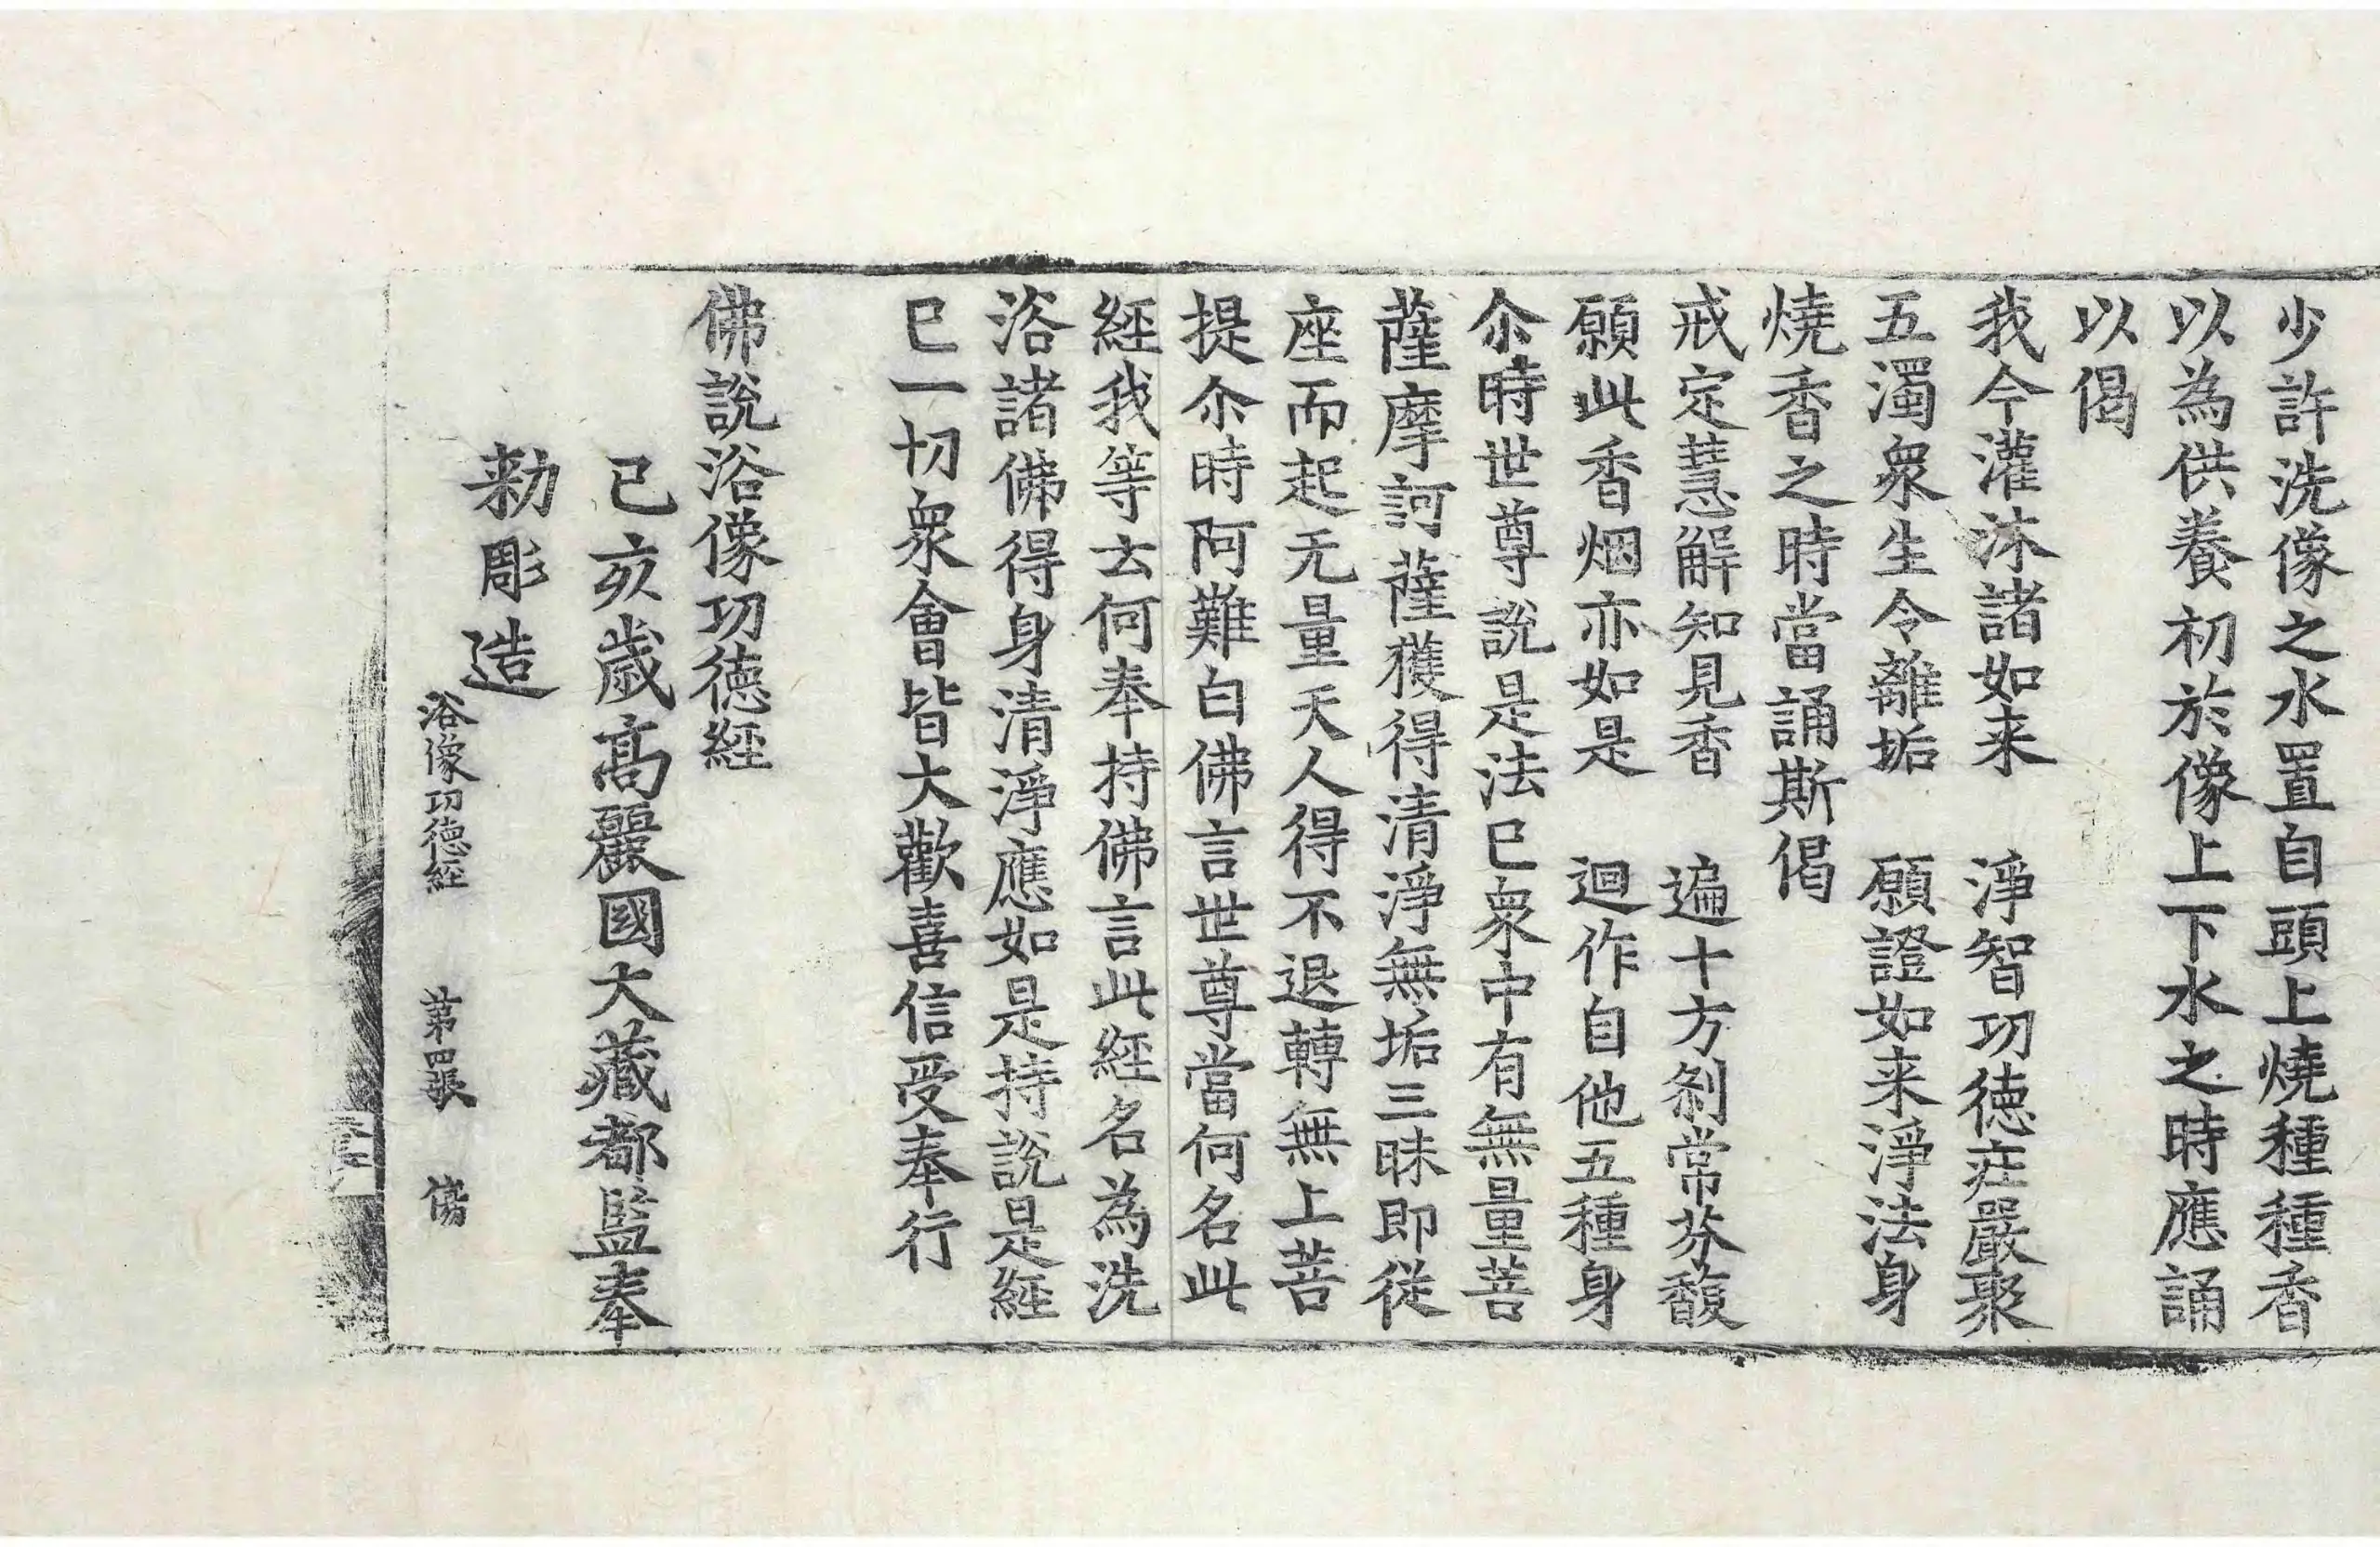 少許洗像之水置自頭上燒種種香
以為供養初於像上下水之時應誦
以偈
我今灌沐諸如来　淨智功德庄嚴聚
五濁衆生令離垢　願證如来淨法身
燒香之時當誦斯偈
戒定慧解知見香　遍十方剎常芬馥
願此香烟亦如是　迴作自他五種身
尒時世尊說是法已衆中有無量菩
薩摩訶薩獲得清淨無垢三昧即從
座而起无量天人得不退轉無上菩
提尒時阿難白佛言世尊當何名此
經我等云何奉持佛言此經名為洗
浴諸佛得身清淨應如是持說是經
已一切衆會皆大歡喜信受奉行
佛說浴像功德經
己亥歲高麗國大藏都監奉
勑彫造
浴像功德經　第四張　傷